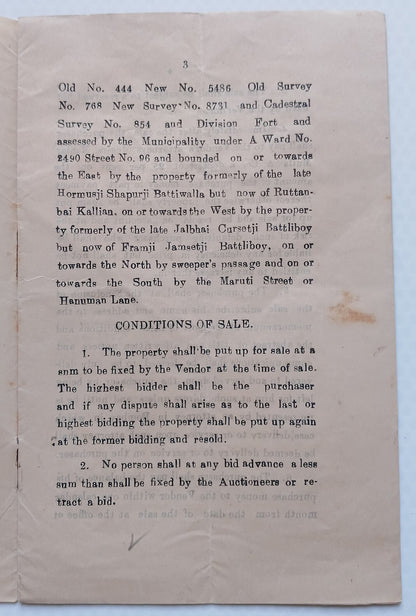 3
Old No. 444 New No. 5486 Old Survey
No. 768 New Survey No. 8731 and Cadestral
Survey No. 854 and Division Fort and
assessed by the Municipality under A Ward No.
2490 Street No. 96 and bounded on or towards
the East by the property formerly of the late
Hormusji Shapurji Battiwalla but now of Ruttan-
bai Kallian. on or towards the West by the proper-
ty formerly of the late Jalbhai Cursetji Battliboy
but now of Framji Jamsetji Battliboy, on or
towards the North by sweeper's passage and on or
towards the South by the Maruti Street or
Hanuman Lane.
CONDITIONS OF SALE.
1. The property shall be put up for sale at a
snm to be fixed by the Vendor at the time of sale.
The highest bidder shall be the purchaser
and if any dispute shall arise as to the last or
highest bidding the property shall be put up again
at the former bidding and resold.
2. No person shall at any bid advance a less
sum than shall be fixed by the Auctioneers or re-
tract a bid.